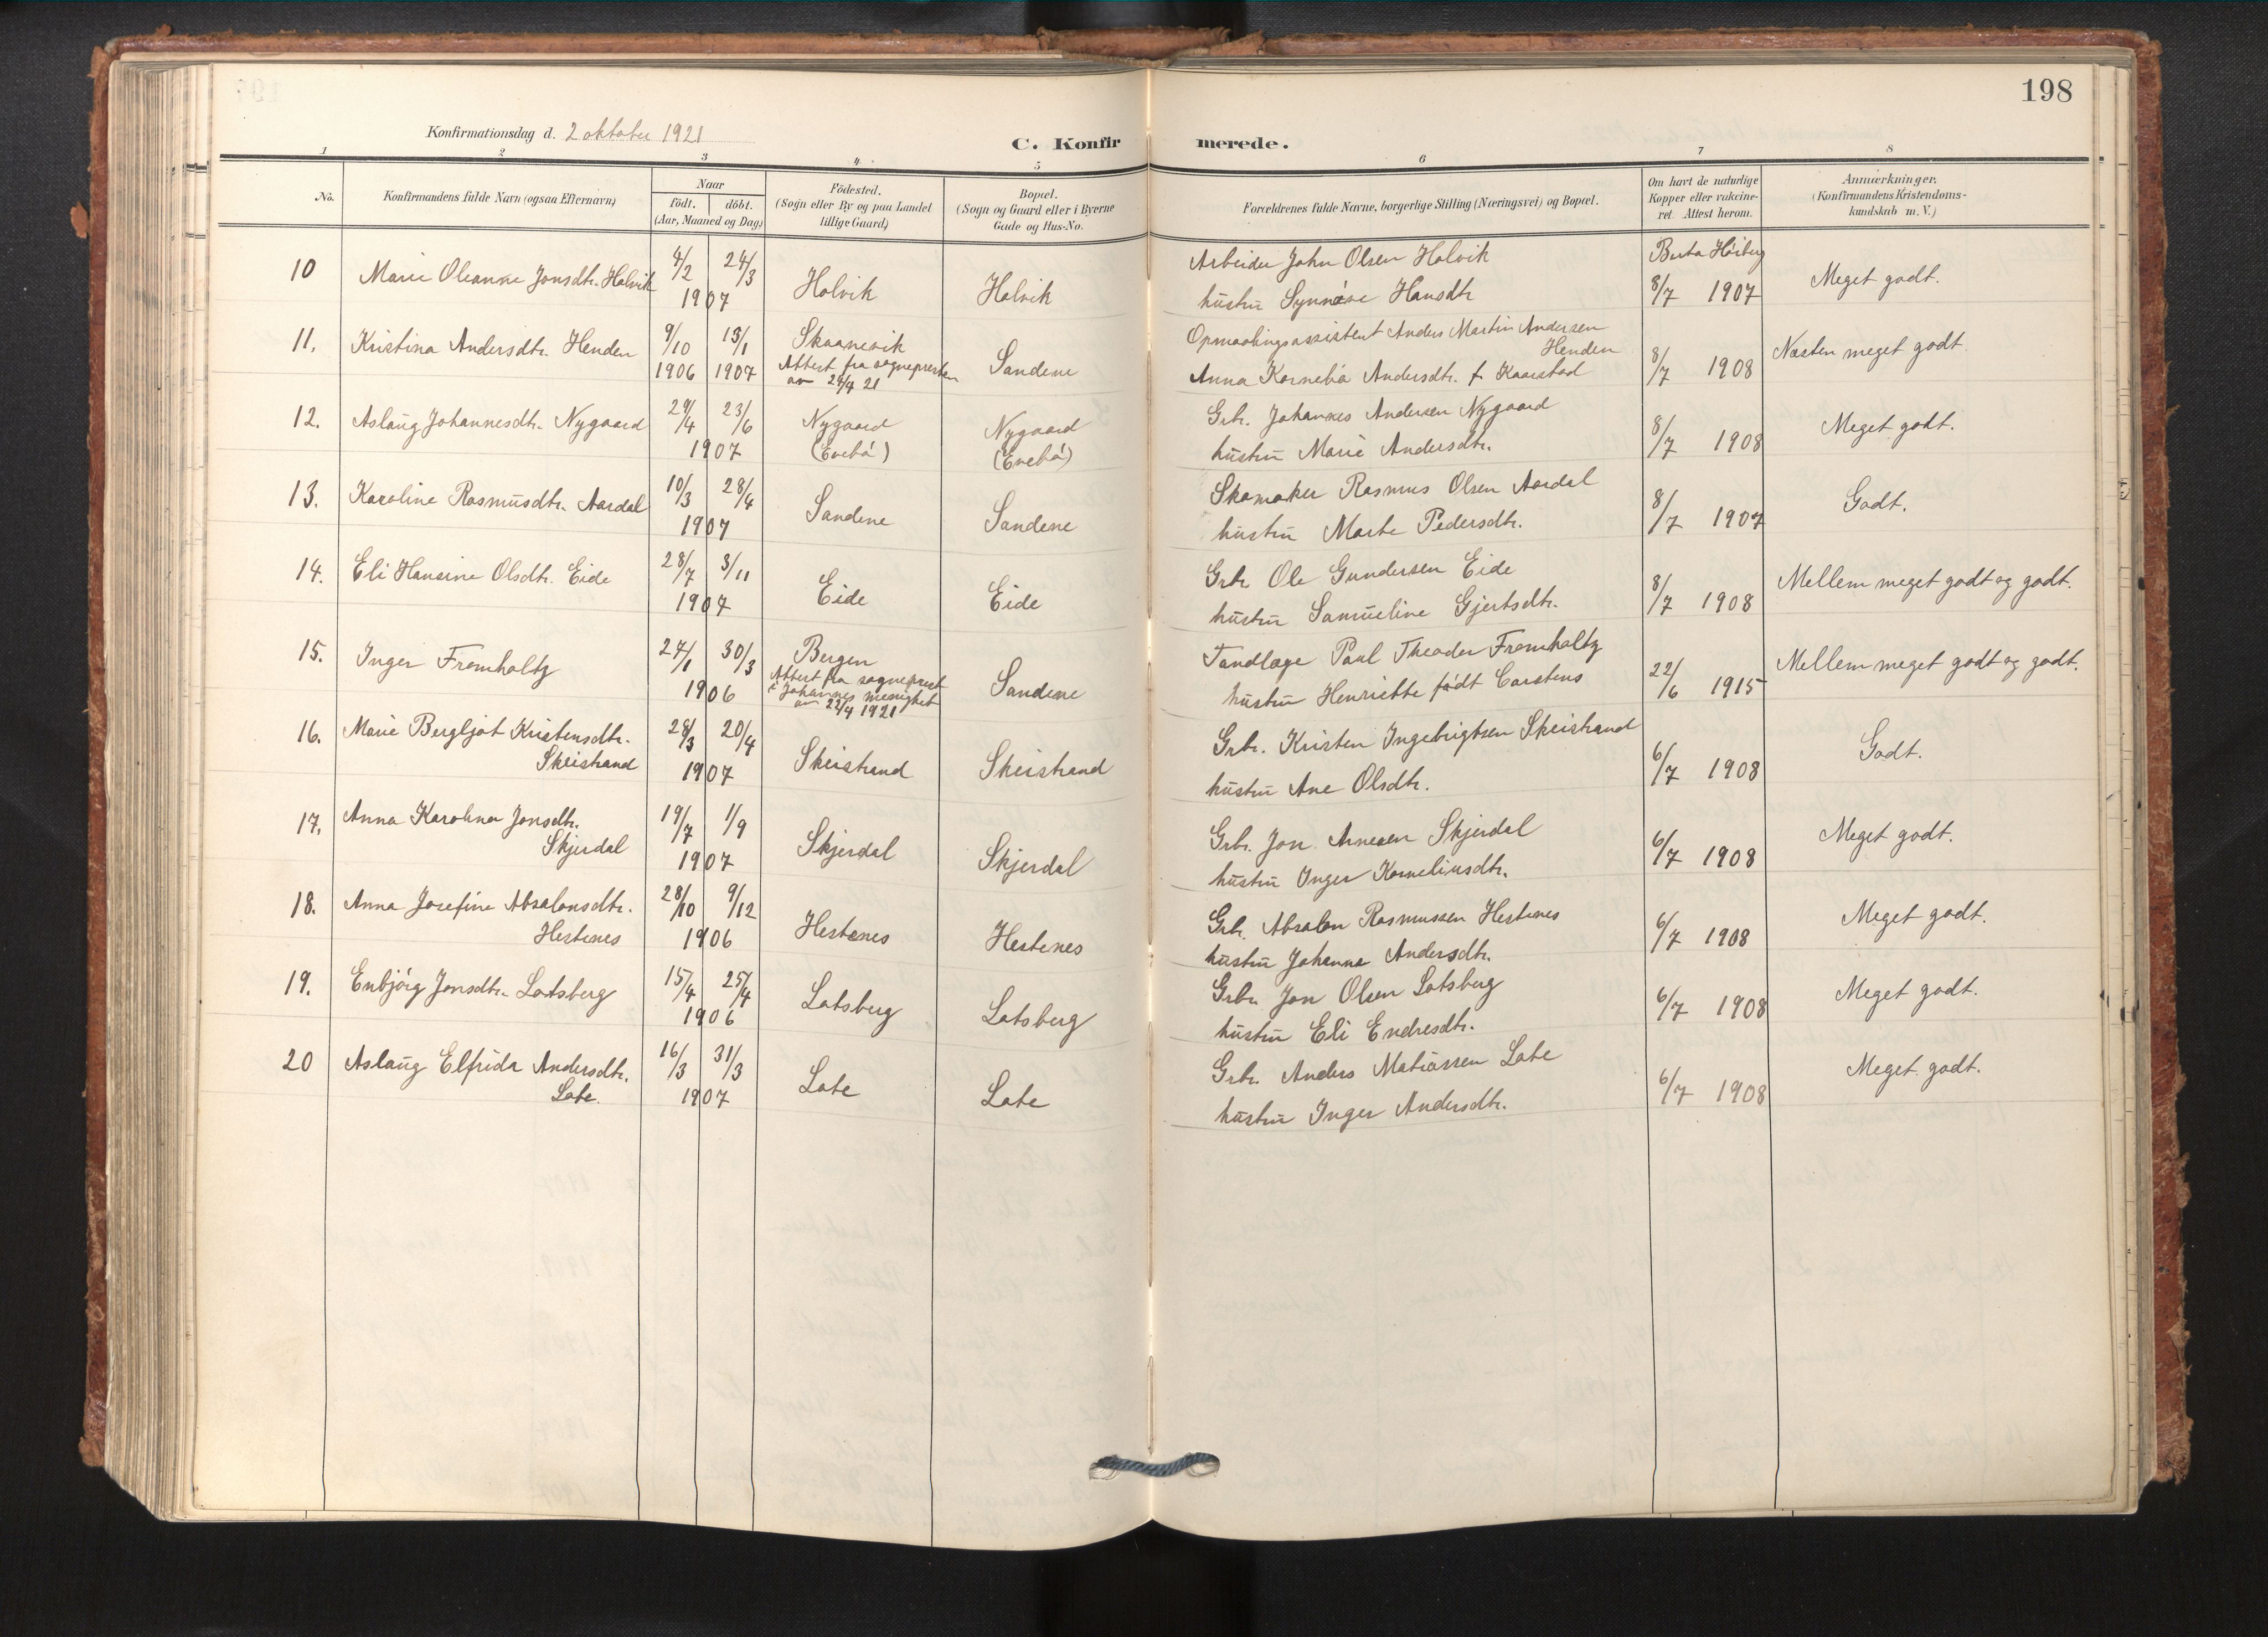 198
Konfirmationsdag d. 2 oktober 1921
C. Konfirmerede.
1 2 3 4 5 6 7 8
No.
Konfirmandens fulde Navn (ogsaa Efternavn)
Naar
födt. döbt.
(Aar, Maaned og Dag)
Födested.
(Sogn eller By og paa Landet
tillige Gaard)
Bopæl.
(Sogn og Gaard eller i Byerne
Gade og Hus-No.
Forældrenes fulde Navne, borgerlige Stilling (Næringsvei) og Bopæl.
Om havt de naturlige
Kopper eller vakcine-
ret. Attest herom.
Anmærkninger.
(Konfirmandens Kristendoms-
kundskab m. V.)
10 Marie Oleanne Jonsdtr. Holvik 4/2 24/3 1907 Holvik Holvik
Arbeider John Olsen Holvik
hustru Synnøve Hansdtr
Berta Høiberg
8/7 1907 Meget godt.
11. Kristina Andersdtr. Henden 9/10 1906 13/1 1907 Skaanevik
Attest fra sognepresten
av 29/4 21
Sandene
Opmaalingsassistent Anders Martin Andersen
Henden
Anna Kornelia Andersdtr. f. Kaarstad
8/7 1908 Næsten meget godt
12. Aslaug Johannesdtr. Nygaard 29/4 23/6 1907 Nygaard
(Evebø)
Nygaard
(Evebø)
Grbr. Johannes Andersen Nygaard
hustru Marie Andersdtr.
8/7 1908 Meget godt.
13. Karoline Rasmusdtr. Aardal 10/3 28/4 1907 Sandene Sandene
Skomaker Rasmus Olsen Aardal
hustru Marte Pedersdtr.
8/7 1907 Godt.
14. Eli Hansine Olsdtr. Eide 28/7 3/11 1907 Eide Eide
Grbr Ole Gundersen Eide
hustru Samueline Gjertsdtr.
8/7 1908 Mellem meget godt og godt.
15. Inger Fromholtz 27/1 30/3 1906 Bergen
Attest fra sogneprest
i Johannes menighet
av 22/4 1921
Sandene
Tandlæge Paul Theodor Fromholtz
hustru Henriette født Carstens
22/6 1915 Mellem meget godt og godt.
16. Marie Bergljot Kristensdtr.
Skeistrand
28/3 20/4 1907 Skeistrand Skeistrand
Grbr. Kristen Ingebrigtsen Skeistrand
hustru Ane Olsdtr.
6/7 1908 Godt.
17. Anna Karolina Jonsdtr.
Skjerdal
19/7 1/9 1907 Skjerdal Skjerdal
Grbr. Jon Arnesen Skjerdal
hustru Inger Korneliusdtr.
6/7 1908 Meget godt.
18. Anna Josefine Absalonsdtr.
Hestenes
28/10 9/12 1906 Hestenes Hestenes
Grbr. Absalon Rasmussen Hestenes
hustru Johanna Andersdtr.
6/7 1908 Meget godt.
19. Enbjørg Jonsdtr. Lotsberg 15/4 25/4 1906 Lotsberg Lotsberg
Grbr. Jon Olsen Lotsberg
hustru Eli Endresdtr.
6/7 1908 Meget godt.
20 Aslaug Elfrida Andersdtr.
Lote.
16/3 31/3 1907 Lote Lote
Grbr. Anders Matiassen Lote
hustru Inger Andersdtr.
6/7 1908 Meget godt.